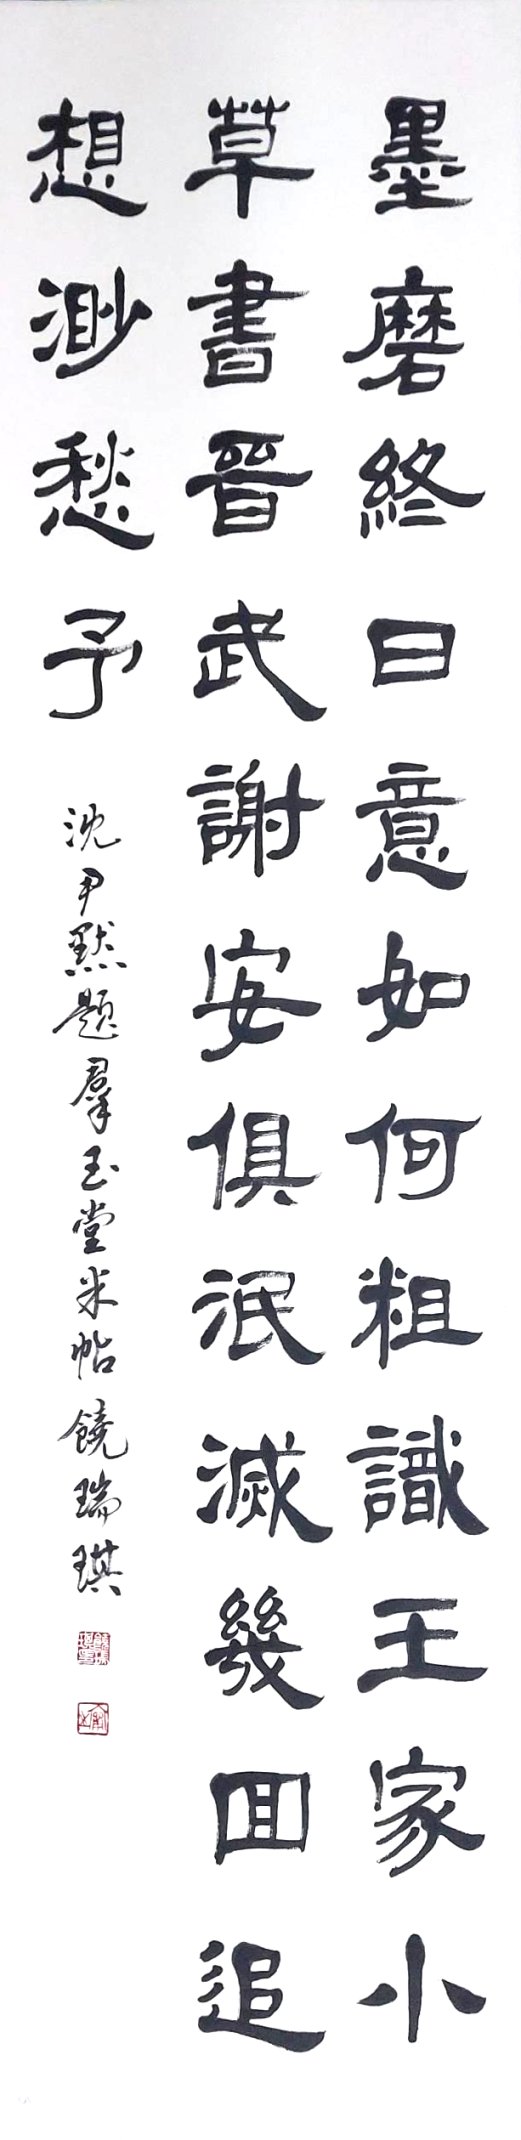 墨磨終日意如何粗識王家小
草書晉武謝安俱泯滅幾回追
想渺愁予
沈尹默題羣玉堂米帖饒瑞琪